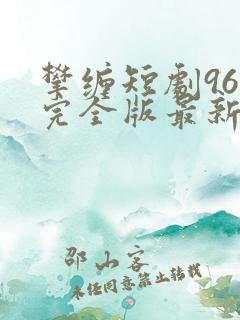 攀缠短剧96
完全版最新
邵山客
未经同意禁止转载